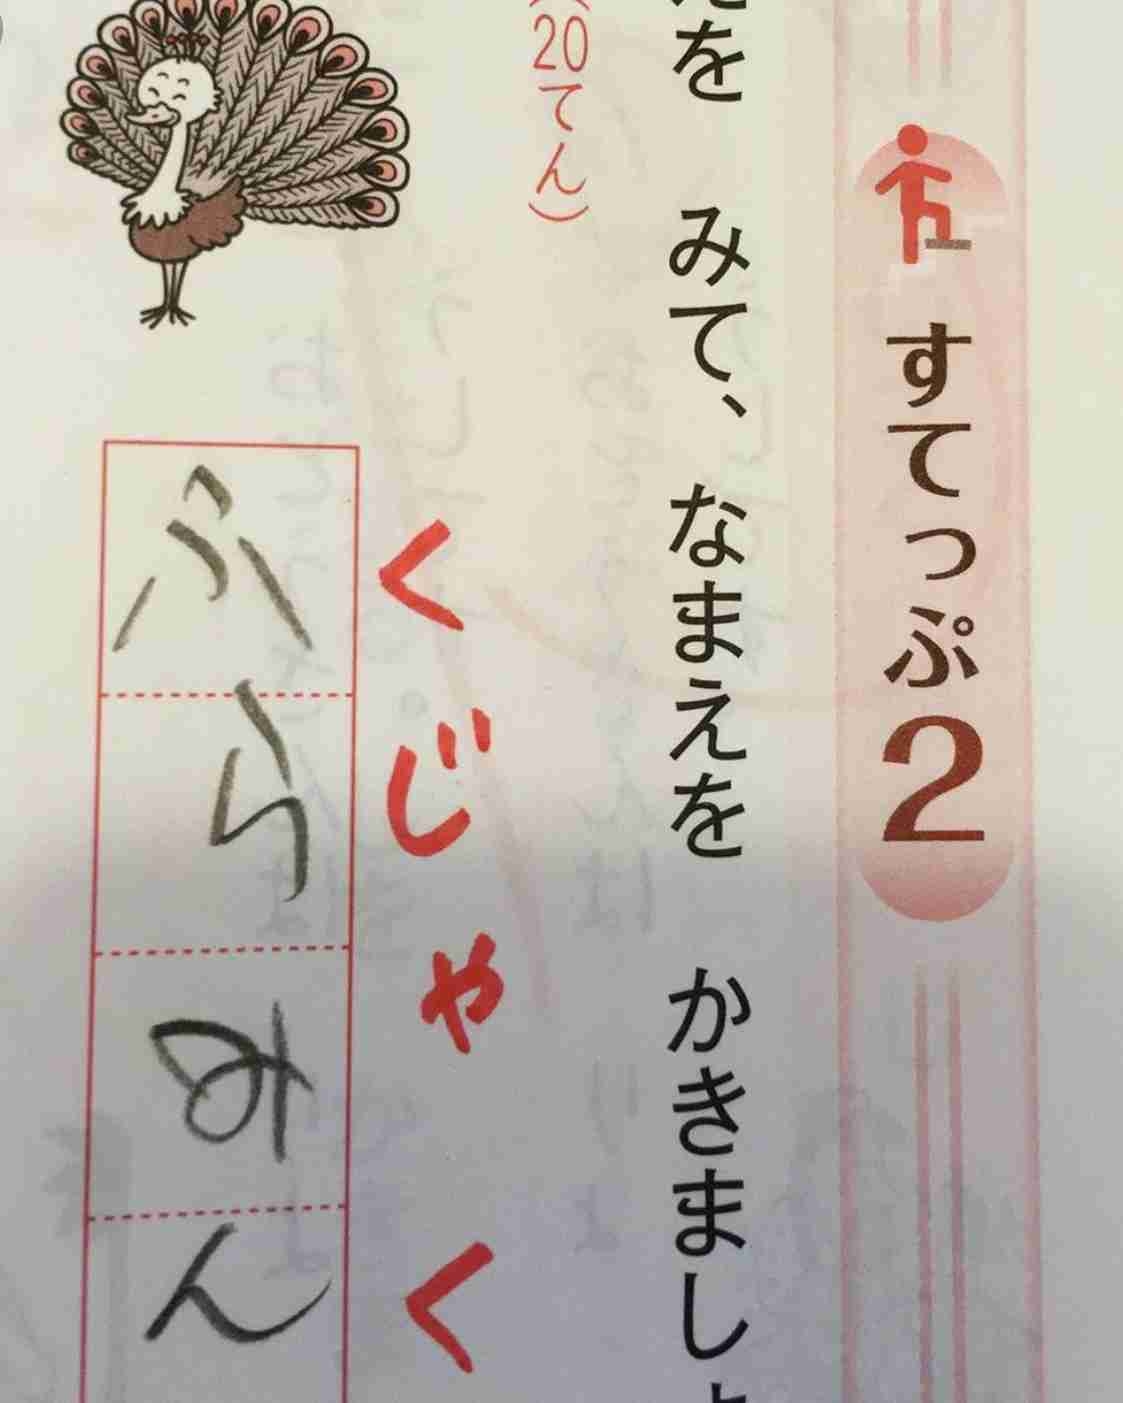 すてっぷ2
を みて、 なまえを かきまし
20てん)
くじゃく
ふらみん